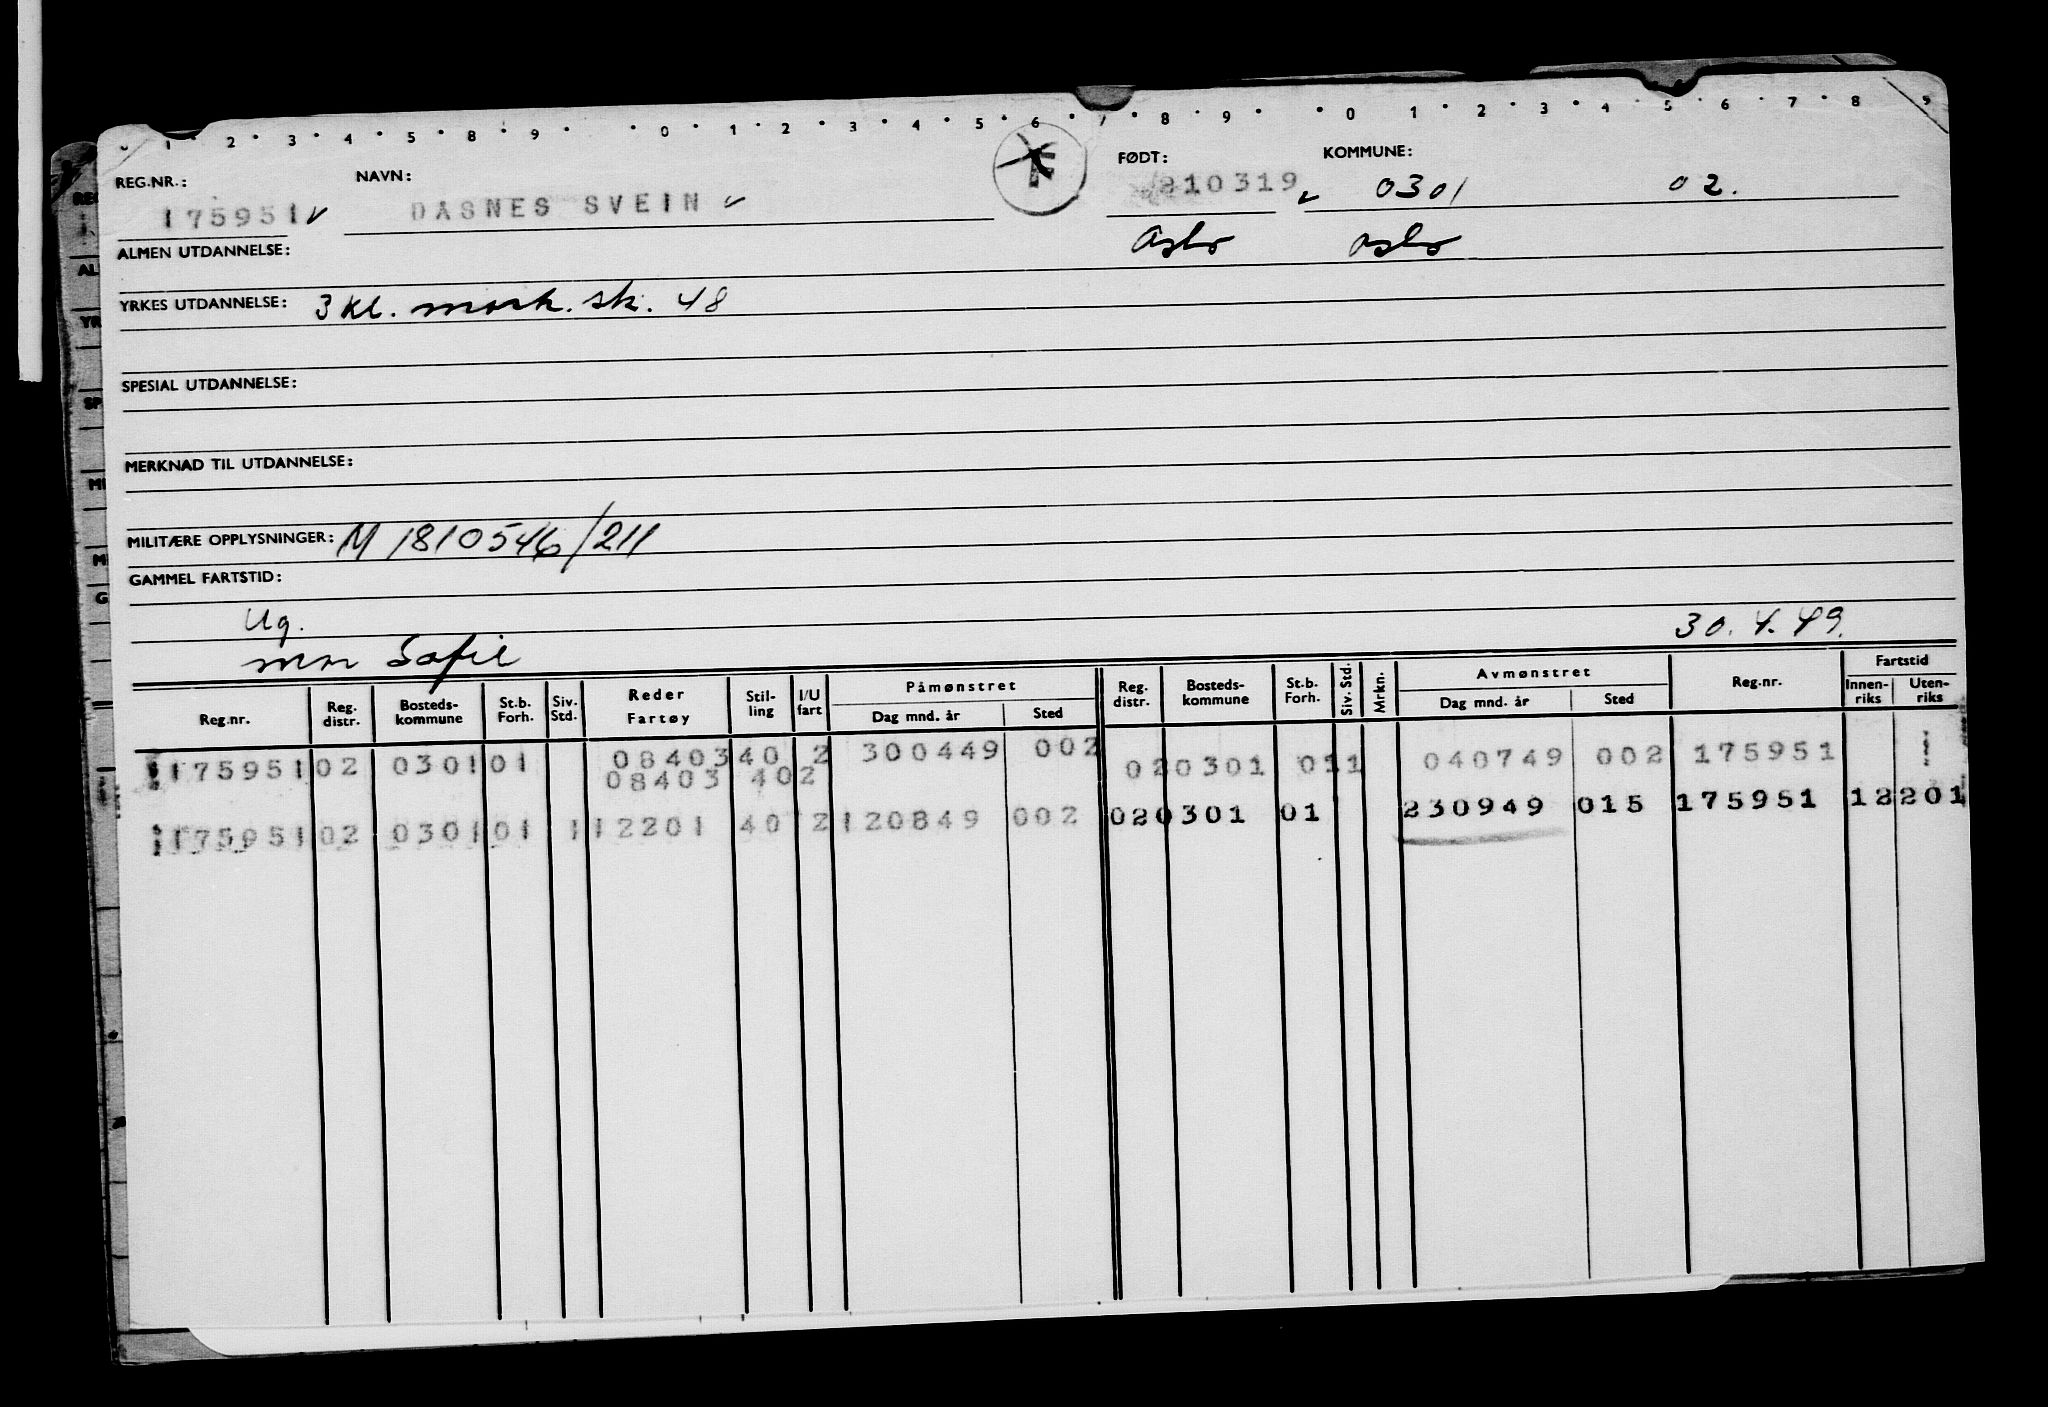 1 · 2 · 3 · 4 · 5 · 8 · 9 · · 0 · 1 · 2 · 3 · 4 · 5 · 6 · 7 · 8 · 9 · · 0 1 · 2 · 3 · 4 · 5 · 6 · 7 · 8 9
REG.NR.: NAVN: F FØDT: KOMMUNE:
175951 DASNES SVEIN 210319 0301 02.
ALMEN UTDANNELSE: Oslo Oslo
YRKES UTDANNELSE: 3 kl. mask. sk. 48
SPESIAL UTDANNELSE:
MERKNAD TIL UTDANNELSE:
MILITÆRE OPPLYSNINGER: M 1810546/211
GAMMEL FARTSTID:
Ug. 30.4.49.
mor Sofie
Reg.nr. Reg. distr. Bosteds-kommune St.b. Forh. Siv. Std. Reder Fartøy Stil-ling I/U fart Påmønstret Dag mnd. år Sted Reg. distr. Bosteds-kommune St.b. Forh. Siv. Std. Mrkn. Avmønstret Dag mnd. år Sted Reg.nr. Fartstid Innen-riks Uten-riks
175951 02 0301 01 08403 40 2 300449 002 02 0301 01 1 040749 002 175951
08403 40 2
175951 02 0301 01 1 12201 40 2 120849 002 02 0301 01 230949 015 175951 12201